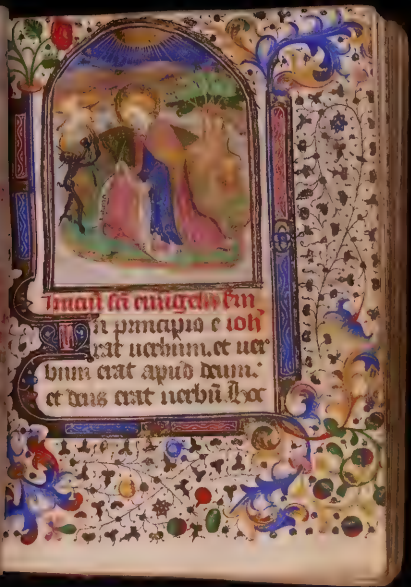 Iniciũ scĩ euãgelii scdm
In principio e ioh̃
rat uerbum. et uer
bum erat apud deum.
et deus erat uerbũ. hoc